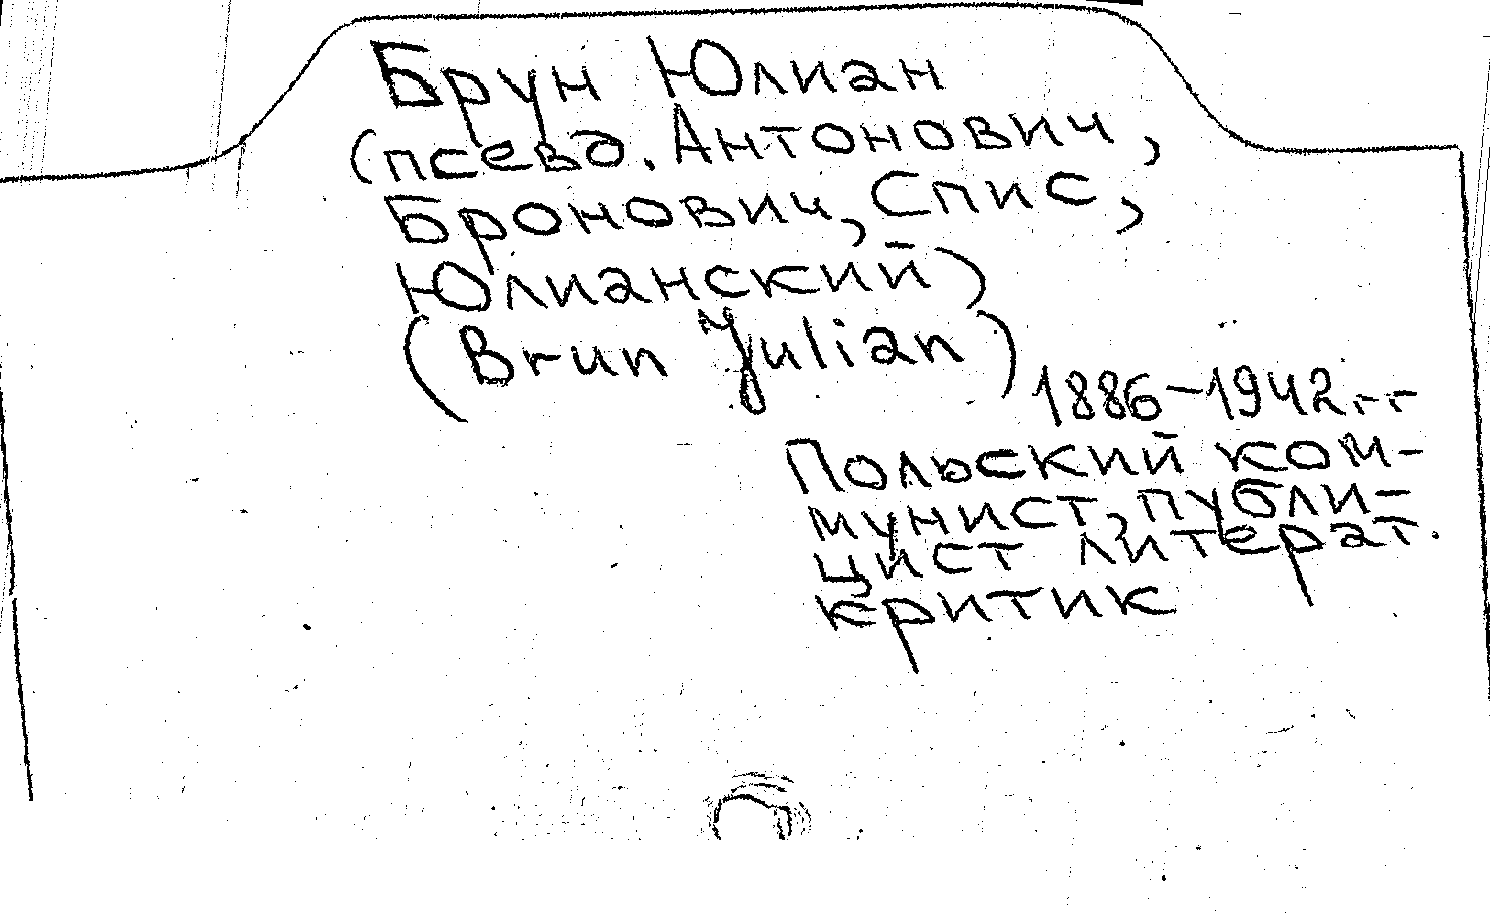 Брун Юлиан
(псевд. Антонович,
Бронович, Спис,
Юлианский)
(Brun Julian)
1886-1942гг
Польский ком-
мунист, публи-
цист литерат.
критик